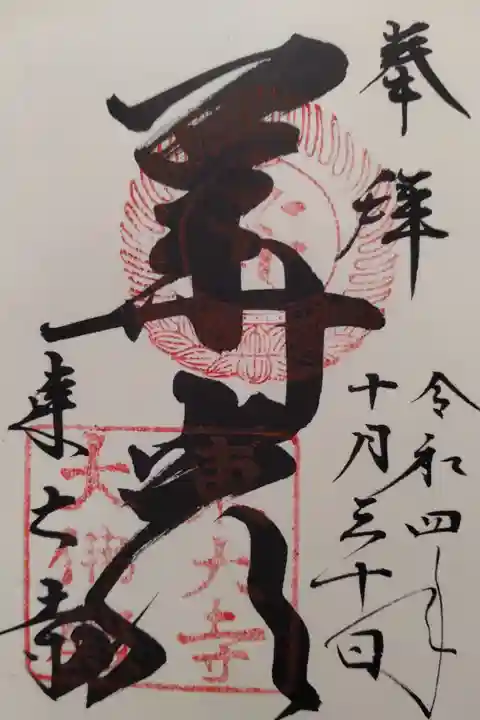 奉拝
令和四年
十月三十日
華嚴
東大寺
東大寺
大佛殿